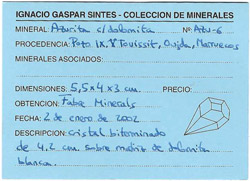 IGNACIO GASPAR SINTES - COLECCION DE MINERALES
MINERAL: Azurita s/dolomita Nº: Azu-6
PROCEDENCIA: Pozo IX, Touissit, Oujda, Marruecos
MINERALES ASOCIADOS:
DIMENSIONES: 5,5x4x3 cm. PRECIO:
OBTENCION: Fabre Minerals
FECHA: 2 de enero de 2002
DESCRIPCION: Cristal biterminado
de 4.2 cm sobre matriz de dolomita
blanca.